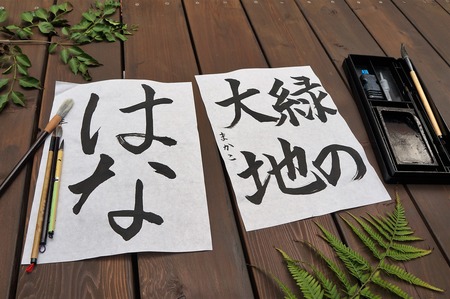 はな
緑の
大地
まかこ